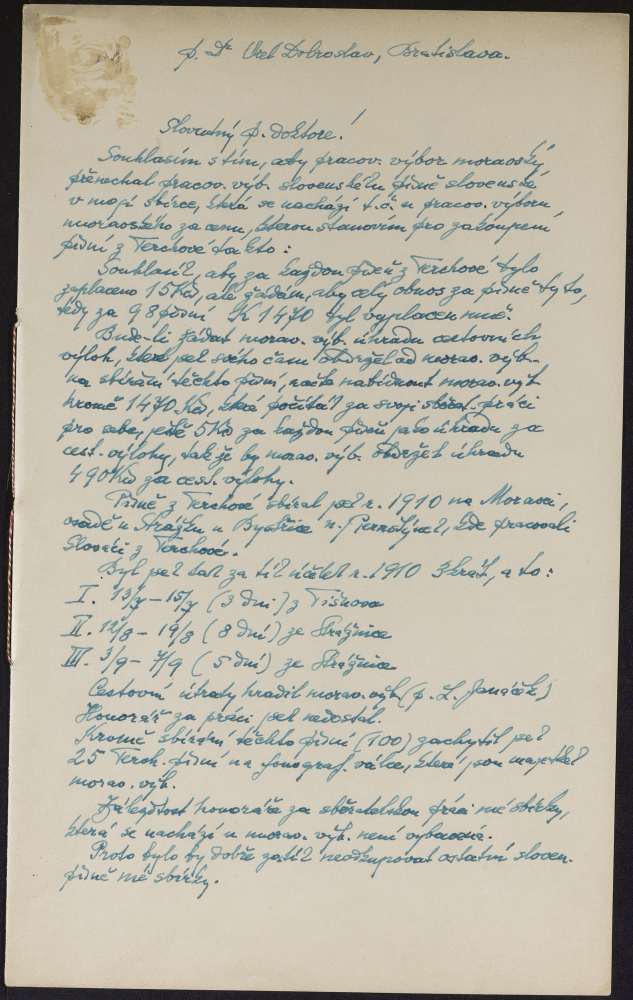 p. Dr Orel Dobroslav, Bratislava.
Slovutný p. doktore!
Souhlasím s tím, aby pracov. výbor moravský
přenechal pracov. výb. slovenském písně slovenské
v mojí sbírce, která se nachází t.č. u pracov. výboru
moravského za cenu, kterou stanovím pro zakoupení
písní z Terchové takto:
Souhlasil, aby za každou píseň z Terchové bylo
zaplaceno 15 Kč, ale žádám, aby celý obnos za písně tyto,
tedy za 98 písní K 1470 byl vyplacen mně.
Bude-li žádat morav. výb. úhradu cestovních
výloh, které jsem svého času obdržel od morav. výb.
na sbírání těchto písní, račte nabídnout morav. výb.
kromě 1470 Kč, které počítal za svoji sběrat. práci
pro sebe, ještě 5 Kč za každou píseň jako úhradu za
cest. výlohy, takže by morav. výb. obdržel úhradu
490 Kč za cest. výlohy.
Písně z Terchové sbíral jsem r. 1910 na Moravě,
osadě u Strážku u Bystřice n./Pernštýnem, kde pracovali
Slováci z Terchové.
Byl jsem tam za tím účelem r. 1910 3krát, a to:
I. 13/7 – 15/7 (3 dni) z Tišnova
II. 12/8 – 19/8 (8 dní) ze Strážnice
III. 3/9 – 7/9 (5 dní) ze Strážnice
Cestovní útraty hradil morav. výb. (p. L. Janáček)
Honorář za práci jsem nedostal.
Kromě sbírání těchto písní (100) zachytil jsem
25 Terch. písní na fonograf. válce, které jsou majetkem
morav. výb.
Záležitost honoráře za sběratelskou práci mé sbírky,
která se nachází u morav. výb. není vybavena.
Proto bylo by dobře zatím neodkupovat ostatní sloven.
písně mé sbírky.